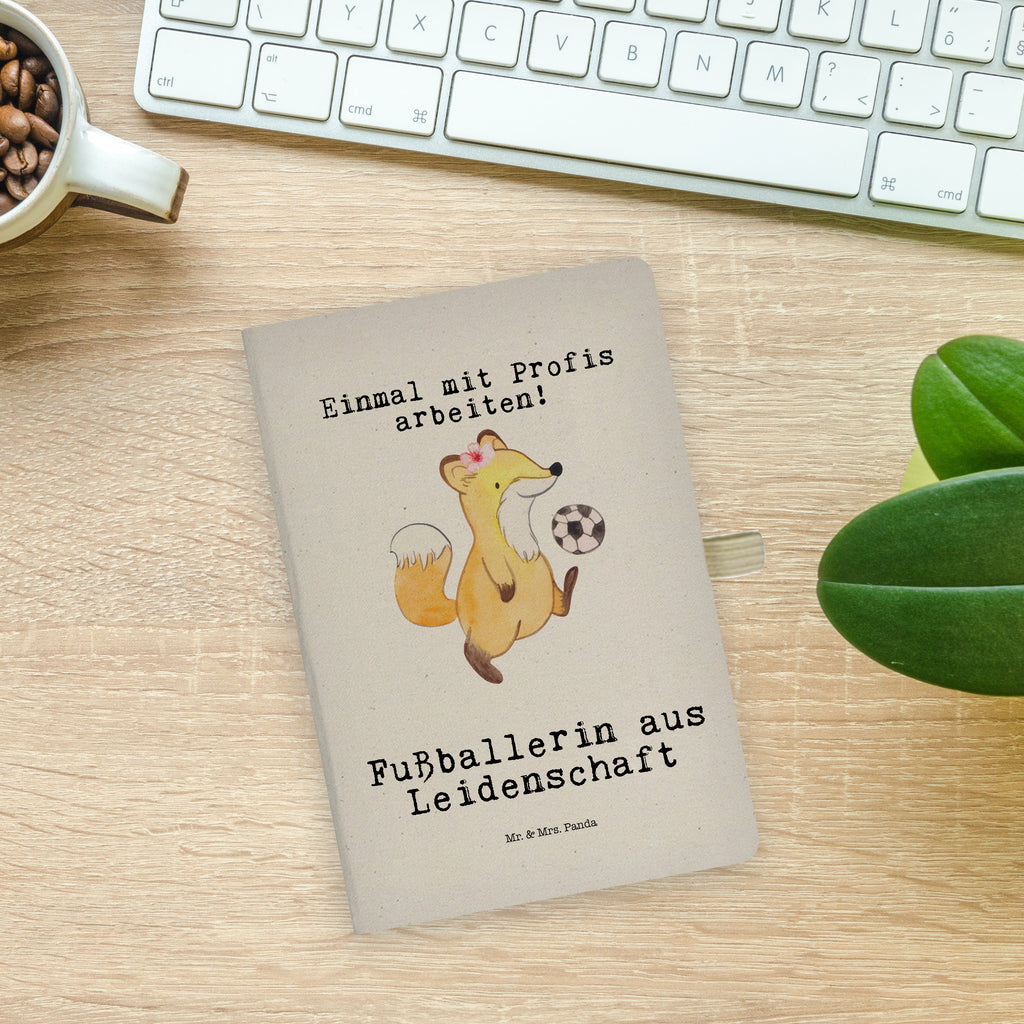 Y X C V B N M
J K L
ctrl
alt
cmd ⌘
? <
: >
_ -
⌘ cmd
Einmal mit Profis
arbeiten!
Fußballerin aus
Leidenschaft
Mr. & Mrs. Panda